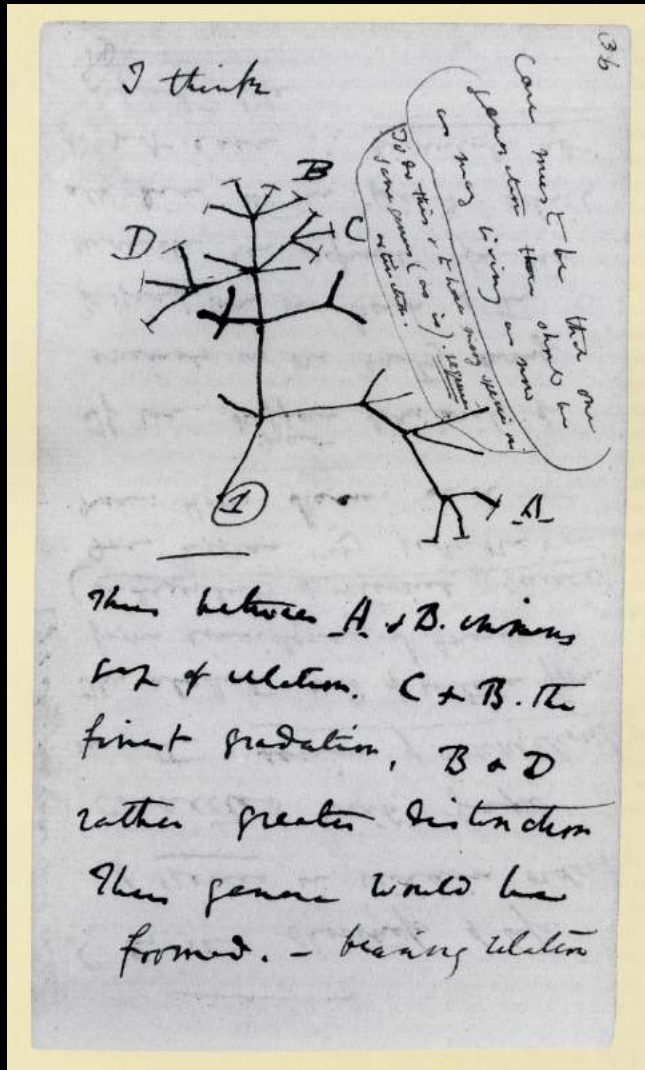 36
I think
Case must be that one
generation then should be
as many living as now
To do this & to have many species in
same genus (as is). requires
extinction.
B
C
D
1
A
Thus between A & B. immens
gap of relation. C & B. the
finest gradation, B & D
rather greater distinction
Thus genera would be
formed. – bearing relation